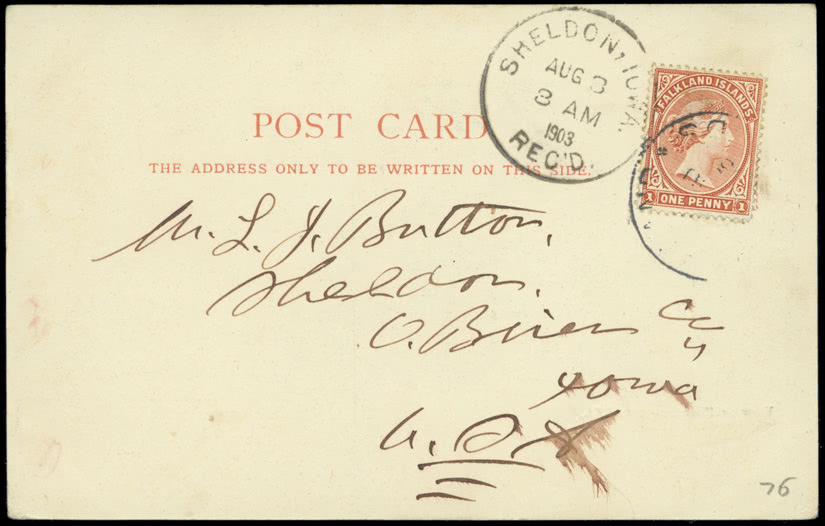 SHELDON, IOWA.
AUG 3
3 AM
1903
REC'D.
FALKLAND ISLANDS
1 ONE PENNY 1
POST CARD
THE ADDRESS ONLY TO BE WRITTEN ON THIS SIDE.
M. L. J. Button,
Sheldon,
O. Brien Co
Iowa
U. S. A
76